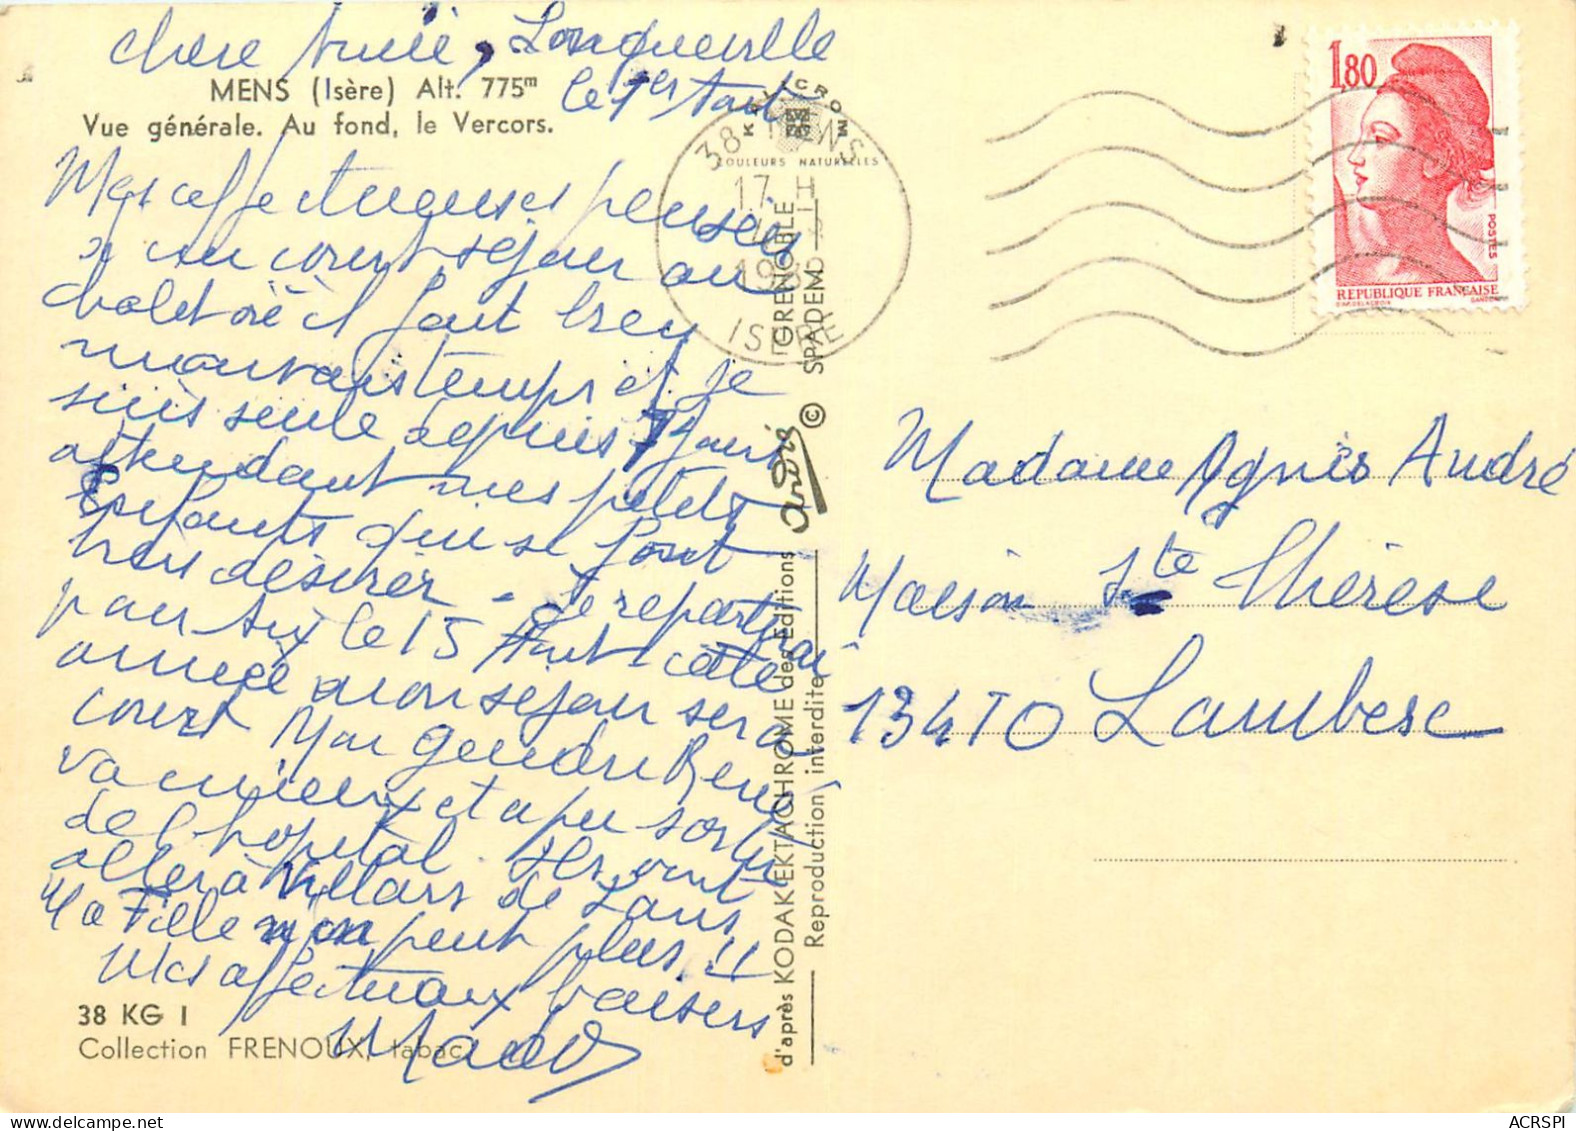 chère Amie, Longueville
le 1er Août
MENS (Isère) Alt. 775m
Vue générale. Au fond, le Vercors.
Mes affectueuses pensées
court séjour au
chalet où il fait bien
mauvais temps et je
suis seule depuis 7 jours
attendant mes petits
Enfants qui se font
bien désirer - Je repartirai
pour Aix le 15 Août cette
année mon séjour sera
court Mon gendre René
va mieux et a pu sortir
de l'hopital. Ils vont
aller à Villars de Lans
Ma Fille n'en peut plus !!
Mes affectueux baisers
Mado
38 KG I
Collection FRENOUX, tabac
KODAK EKTACHROME
d'après KODAK EKTACHROME des Éditions
Reproduction interdite
GRENOBLE
© SPADEM
COULEURS NATURELLES
38 MENS
17 H
ISERE
1,80
POSTES
REPUBLIQUE FRANÇAISE
Madame Agnès André
Maison Ste Thérèse
13410 Lambesc
ACRSPI